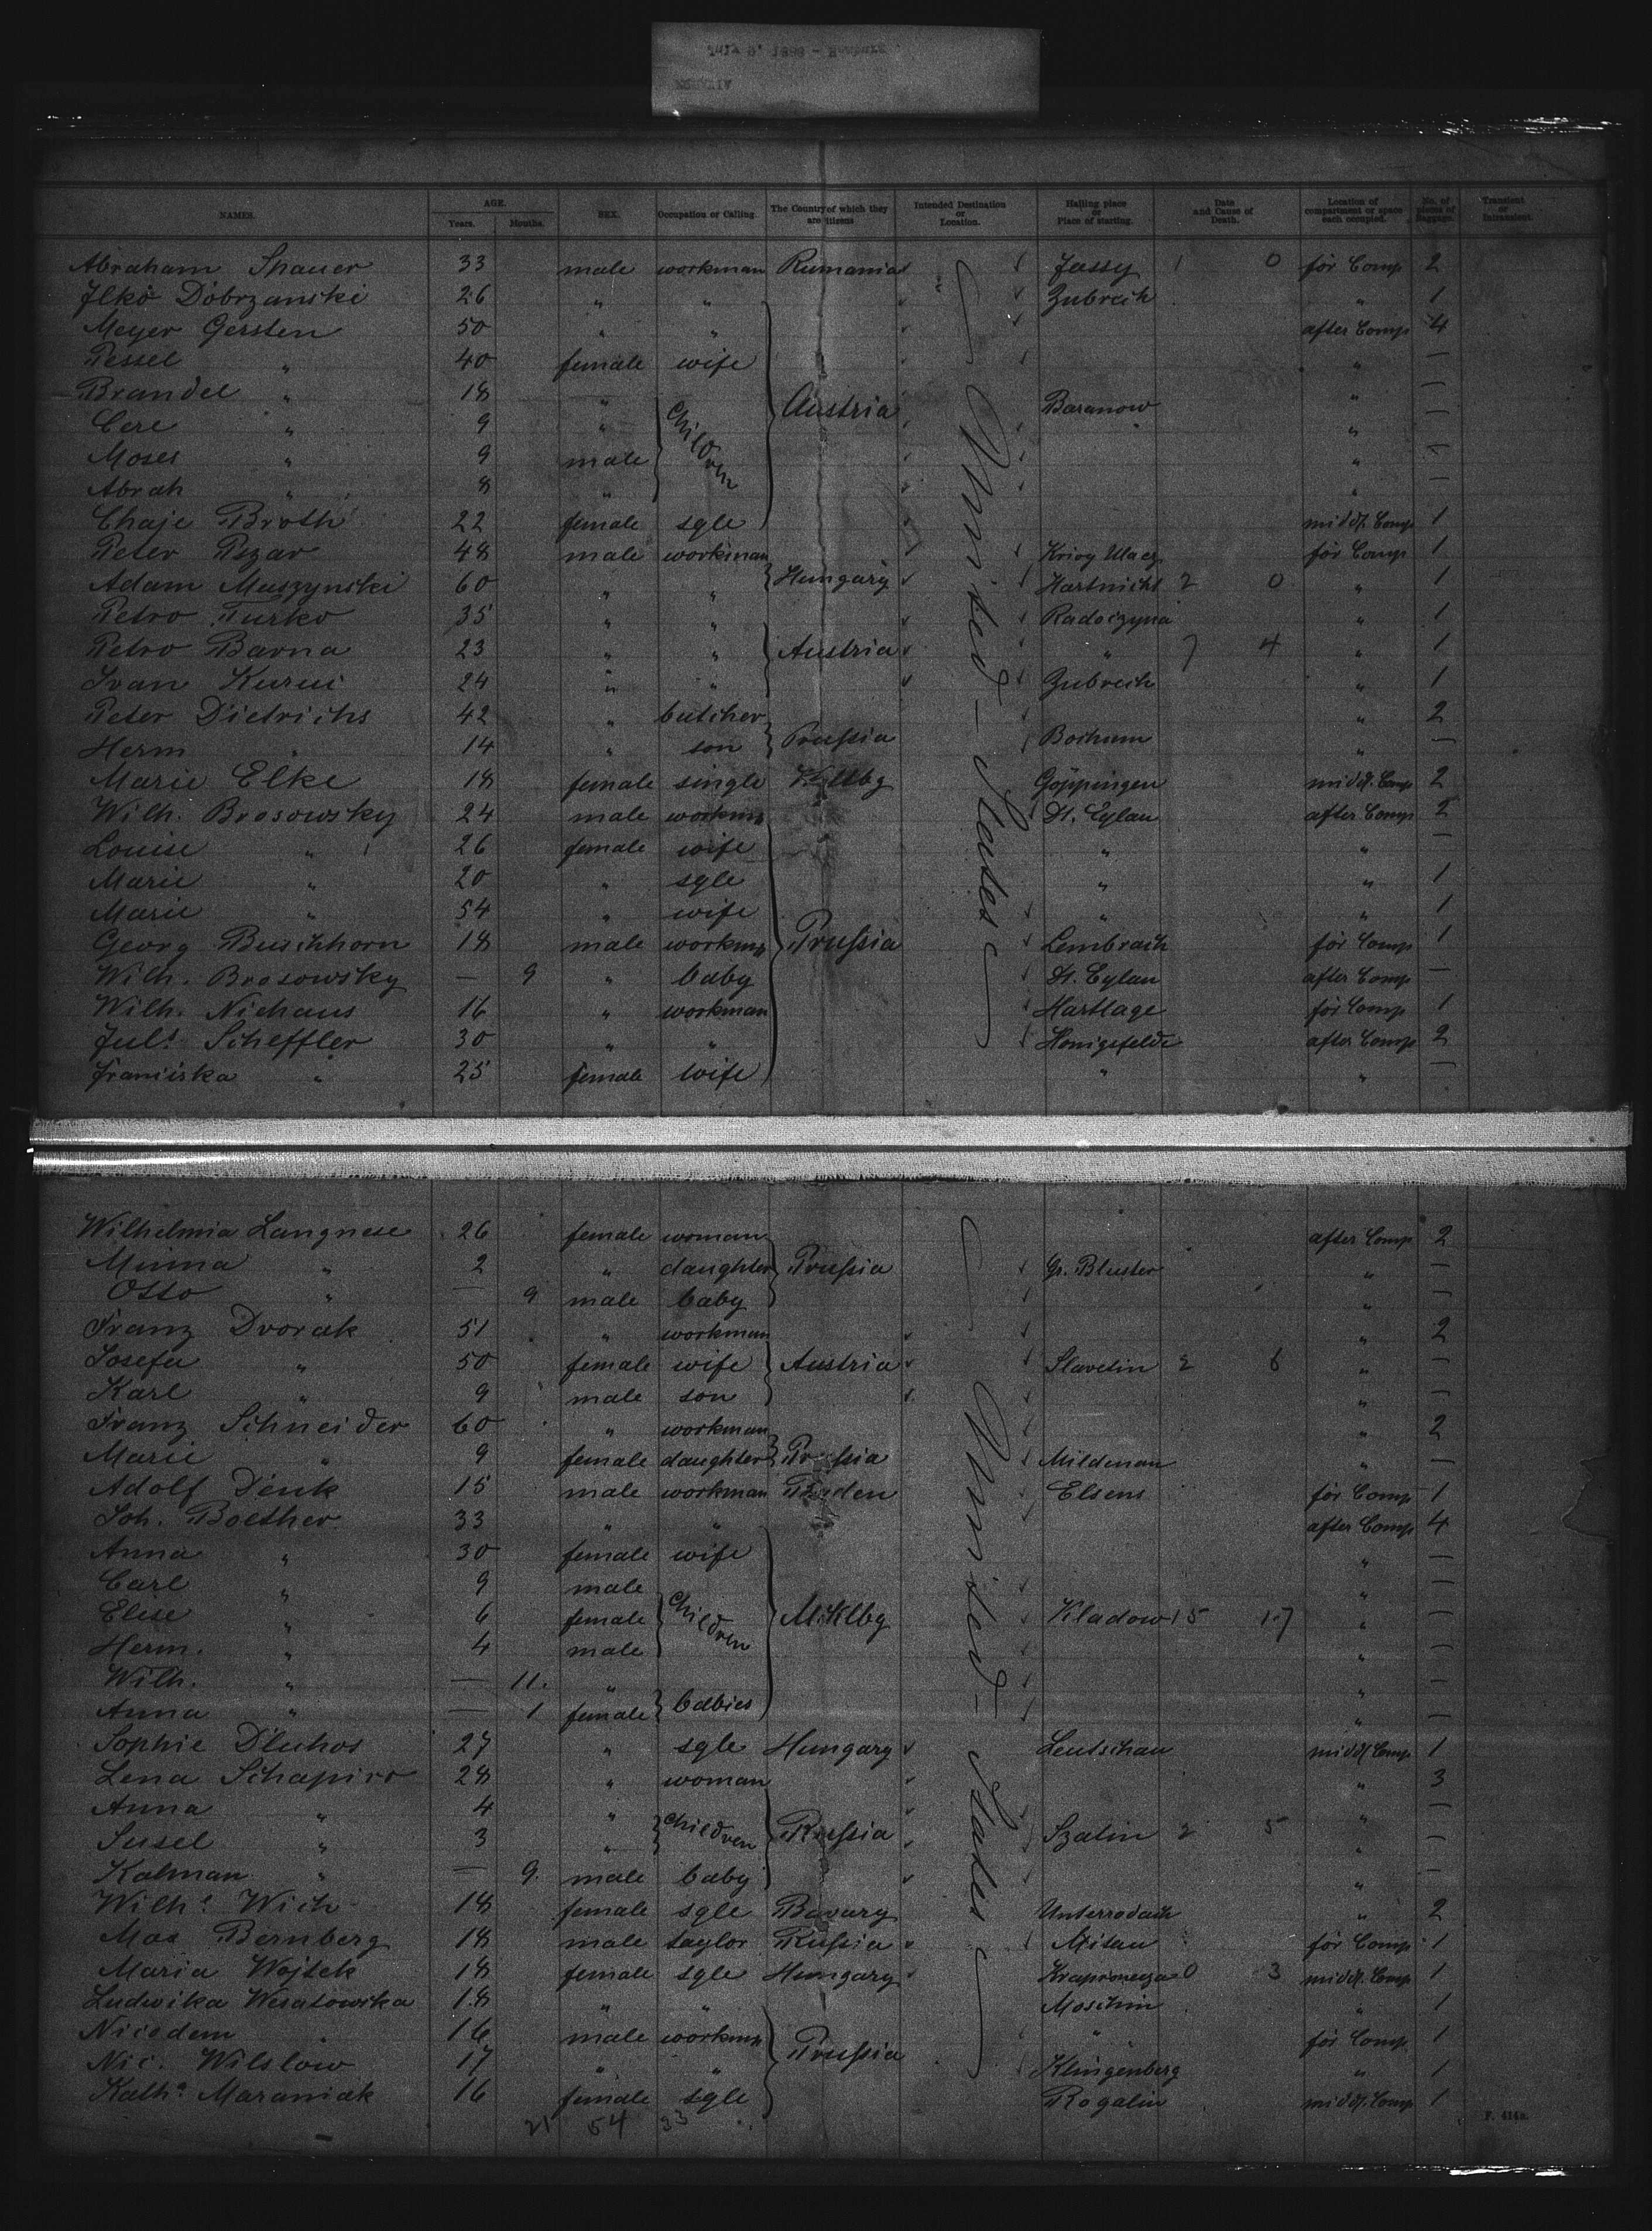 July 9. 1888 - Hamburg
NAMES. AGE. Years. Months. SEX. Occupation or Calling. The Country of which they are citizens Intended Destination or Location. Halling place or Place of starting. Date and Cause of Death. Location of compartment or space each occupied. No. of pieces of Baggage. Transient or Intransient.
Abraham Spauer 33 male workman Rumania Jassy 1 0 för Comp 2
Jlko Dobrzanski 26 " " Zubrech " 1
Meyer Gersten 50 " " after Comp 4
Pessel " 40 female wife " —
Brandel " 18 " Austria Baranow " —
Cere " 9 " Children " " —
Moses " 9 male " —
Abrah " 8 " " —
Chaje Broth 22 female sgle midd. Comp 1
Peter Pszar 48 male workman för Comp 1
Adam Muszynski 60 " " Hungary Hartnicht 2 0 " 1
Petro Turko 35 " " Radoczyna " 1
Petro Barna 23 " " Austria " 7 4 " 1
Ivan Kurui 24 " " Zubrech " 1
Peter Dietrichs 42 " butcher " 2
Herm " 14 " son Prussia Bochum " —
Marie Elke 18 female single Göppingen midd. Comp 2
Wilh. Brosowsky 24 male workm Dt. Eylau after Comp 2
Louise " 26 female wife " " —
Marie " 20 " sgle " " 1
Marie " 54 " wife " " 1
Georg Buschhorn 18 male workm Prussia Lembrach för Comp 1
Wilh. Brosowsky — 9 " baby Dt. Eylau after Comp —
Wilh. Niehaus 16 " workman Hartlage för Comp 1
Juls Scheffler 30 " " Honigfelde after Comp 2
Franciska " 25 female wife " " —
United States
Wilhelmia Langnese 26 female woman after Comp 2
Minna " 2 " daughter Prussia Gr. Bluster " —
Otto " — 9 male baby " —
Franz Dvorak 51 " workman " 2
Josefa " 50 female wife Austria Slavetin 2 6 " —
Karl " 9 male son " —
Franz Schneider 60 " workman " 2
Marie " 9 female daughter Prussia Mildenau " —
Adolf Denk 15 male workman Baden Elsens för Comp 1
Joh. Boether 33 " " after Comp 4
Anna " 30 female wife " —
Carl " 9 male " —
Elise " 6 female Children Mcklbg Kladow 15 17 " —
Herm. " 4 male " —
Wilh. " — 11. " " —
Anna " — 1 female babies " —
Sophie Dluhos 27 " sgle Hungary Leutschau midd. Comp 1
Lena Schapiro 28 " woman " 3
Anna " 4 " " —
Susel " 3 " Children Russia Szatin 2 5 " —
Kalman " — 9 male baby " —
Wilhe Wich 18 female sgle Bavary Unterrodach " 2
Max Bernberg 18 male taylor Russia Mitau för Comp 1
Maria Wojtek 18 female sgle Hungary 0 3 midd. Comp 1
Ludwika Wesatowska 18 " " Moschin " 1
Nicodem " 16 male workm Prussia " för Comp 1
Nic. Wilslow 17 " " Klingenberg " 1
Katha Maraniak 16 female sgle Rogalin midd. Comp 1
United States
21 54 33
F. 414a.